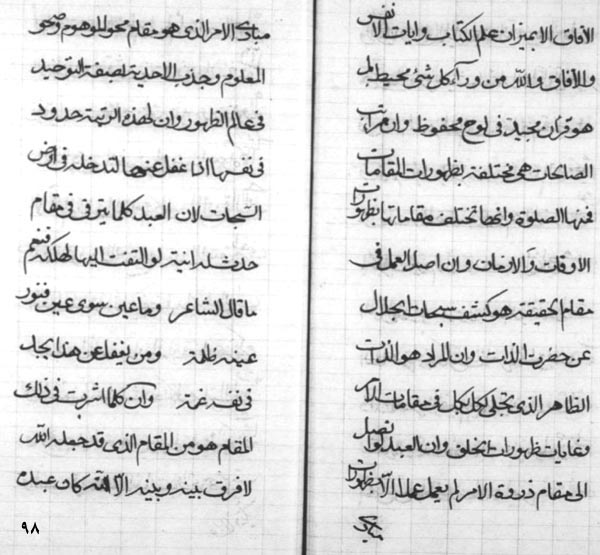 الافاق الا بميزان علم الكتاب وايات الانفس
والافاق والله من وراء كل شئ محيط بل
هو قران مجيد فى لوح محفوظ وان مراتب
الصالحات هى مختلفة بظهورات المقامات
فمنها الصلوة وانها تختلف مقاماتها بظهورات
الاوقات والازمان وان اصل العمل فى
مقام الحقيقة هو كشف سبحات الجلال
عن حضرت الذات وان المراد هو الذات
الظاهر الذى تجلى لكل بكل فى مقامات الامر
وغايات ظهورات الخلق وان العبد لو يصل
الى مقام ذروة الامر لم يعمل عملا الا بظهورات
مبادى
مبادى الامر الذى هو مقام محو الموهوم وصحو
المعلوم وجذب الاحدية لصفة التوحيد
فى عالم الظهور وان لهذه الرتبة حدود
فى نفسها اذا غفل عنها لتدخله فى ارض
السبحات لان العبد كلما يترقى فى مقام
حدث له انية لو التفت اليها لهلكه فنعم
ما قال الشاعر وما عين سوى عين فنور
عينه ظلمة ومن يغفل عن هذا يجد
فى نفسه غمة وان كلما اشرت فى ذلك
المقام هو من المقام الذى قد جعله الله
لا فرق بينه وبينه الا انه كان عبده
٩٨